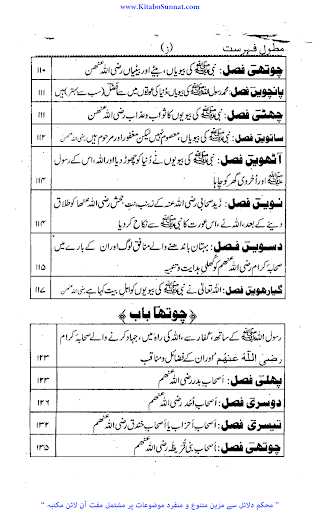 www.KitaboSunnat.com
مطول فہرست
(ز)
چوتھی فصل: نبی ﷺ کی بیویاں، بیٹے اور بیٹیاں رضی اللہ عنھن ۱۱۰
پانچویں فصل: محمد رسول اللہ ﷺ کی بیویاں دُنیا کی عورتوں میں سے افضل (سب سے بہتر) ہیں ۱۱۱
چھٹی فصل: نبی ﷺ کی بیویوں کا ثواب و عذاب رضی اللہ عنھن ۱۱۱
ساتویں فصل: نبی ﷺ کی بیویاں، معصوم نہیں لیکن مغفور اور مرحوم ہیں رضی اللہ عنھن ۱۱۲
آٹھویں فصل: نبی ﷺ کی بیویوں نے دُنیا کو چھوڑ دیا اور اللہ، اس کے رسول
ﷺ اور اُخروی گھر کو چاہا ۱۱۳
نویں فصل: زید صحابی رضی اللہ عنہ کے زینب بنت جحش رضی اللہ عنھا کو طلاق
دینے کے بعد، اللہ نے، اس عورت کا نبی ﷺ سے نکاح کر دیا ۱۱۴
دسویں فصل: بہتان باندھنے والے منافق لوگ اور ان کے بارے میں
صحابہ کرام رضی اللہ عنھم کو کھلی ہدایت و تنبیہ ۱۱۵
گیارھویں فصل: اللہ تعالیٰ نے نبی ﷺ کی بیویوں کو اہل بیت کہا ہے رضی اللہ عنھن ۱۱۷
چوتھا باب
رسول اللہ ﷺ کے ساتھ، کفار سے، اللہ کی راہ میں، جہاد کرنے والے صحابہ کرام
رضی اللہ عنھم اور ان کے فضائل و مناقب ۱۲۳
پہلی فصل: اَصحابِ بدر رضی اللہ عنھم ۱۲۳
دوسری فصل: اَصحابِ اُحد رضی اللہ عنھم ۱۲۶
تیسری فصل: اَصحابِ اَحزاب یا اَصحابِ خندق رضی اللہ عنھم ۱۳۲
چوتھی فصل: اَصحابِ بنی قُریظہ رضی اللہ عنھم ۱۳۵
" محکم دلائل سے مزین متنوع و منفرد موضوعات پر مشتمل مفت آن لائن مکتبہ "